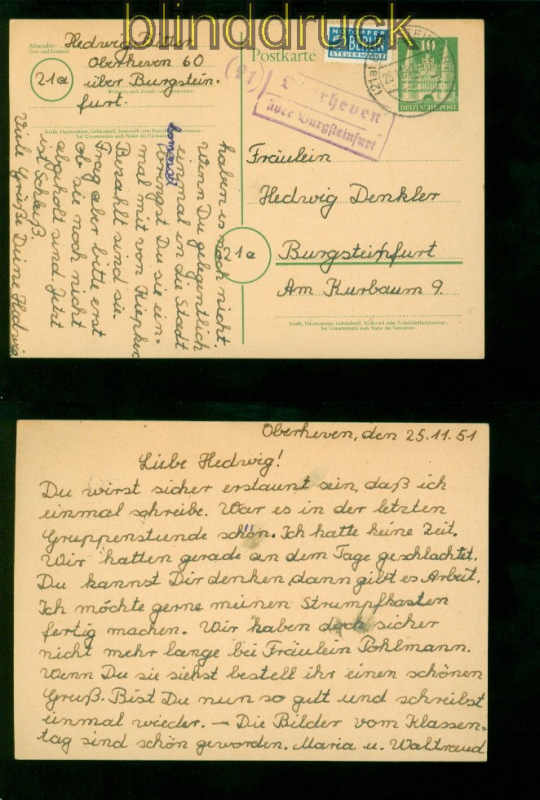 blinddruck
Absender:
Hedwig
Oberheven 60
21a
über Burgstein-
furt.
Postkarte
NOTOPFER
2 BERLIN
STEUERMARKE
10
DEUTSCHE POST
(21)
heven
über Burgsteinfurt
Fräulein
Hedwig Denkler
21a
Burgsteinfurt
Am Kurbaum 9.
Straße, Hausnummer, Gebäudeteil, Stockwerk oder Postschließfachnummer,
bei Untermietern auch Name des Vermieters
haben es noch nicht.
Wenn Du gelegentlich
einmal in die Stadt
kommst
bringst Du sie un-
mal mit von Kiepker
Bezahlt sind sie
Frag aber bitte erst
ob sie noch nicht
abgeholt sind. Jetzt
ist Schluß.
Viele Grüße Deine Hedwig
Oberheven, den 25.11.51
Liebe Hedwig!
Du wirst sicher erstaunt sein, daß ich
einmal schreibe. War es in der letzten
Gruppenstunde schön. Ich hatte keine Zeit.
Wir hatten gerade an dem Tage geschlachtet.
Du kannst Dir denken, dann gibt es Arbeit.
Ich möchte gerne meinen Strumpfkasten
fertig machen. Wir haben doch sicher
nicht mehr lange bei Fräulein Pohlmann.
Wenn Du sie siehst bestell ihr einen schönen
Gruß. Bist Du nun so gut und schreibst
einmal wieder. – Die Bilder vom Klassen-
tag sind schön geworden. Maria u. Waltraud